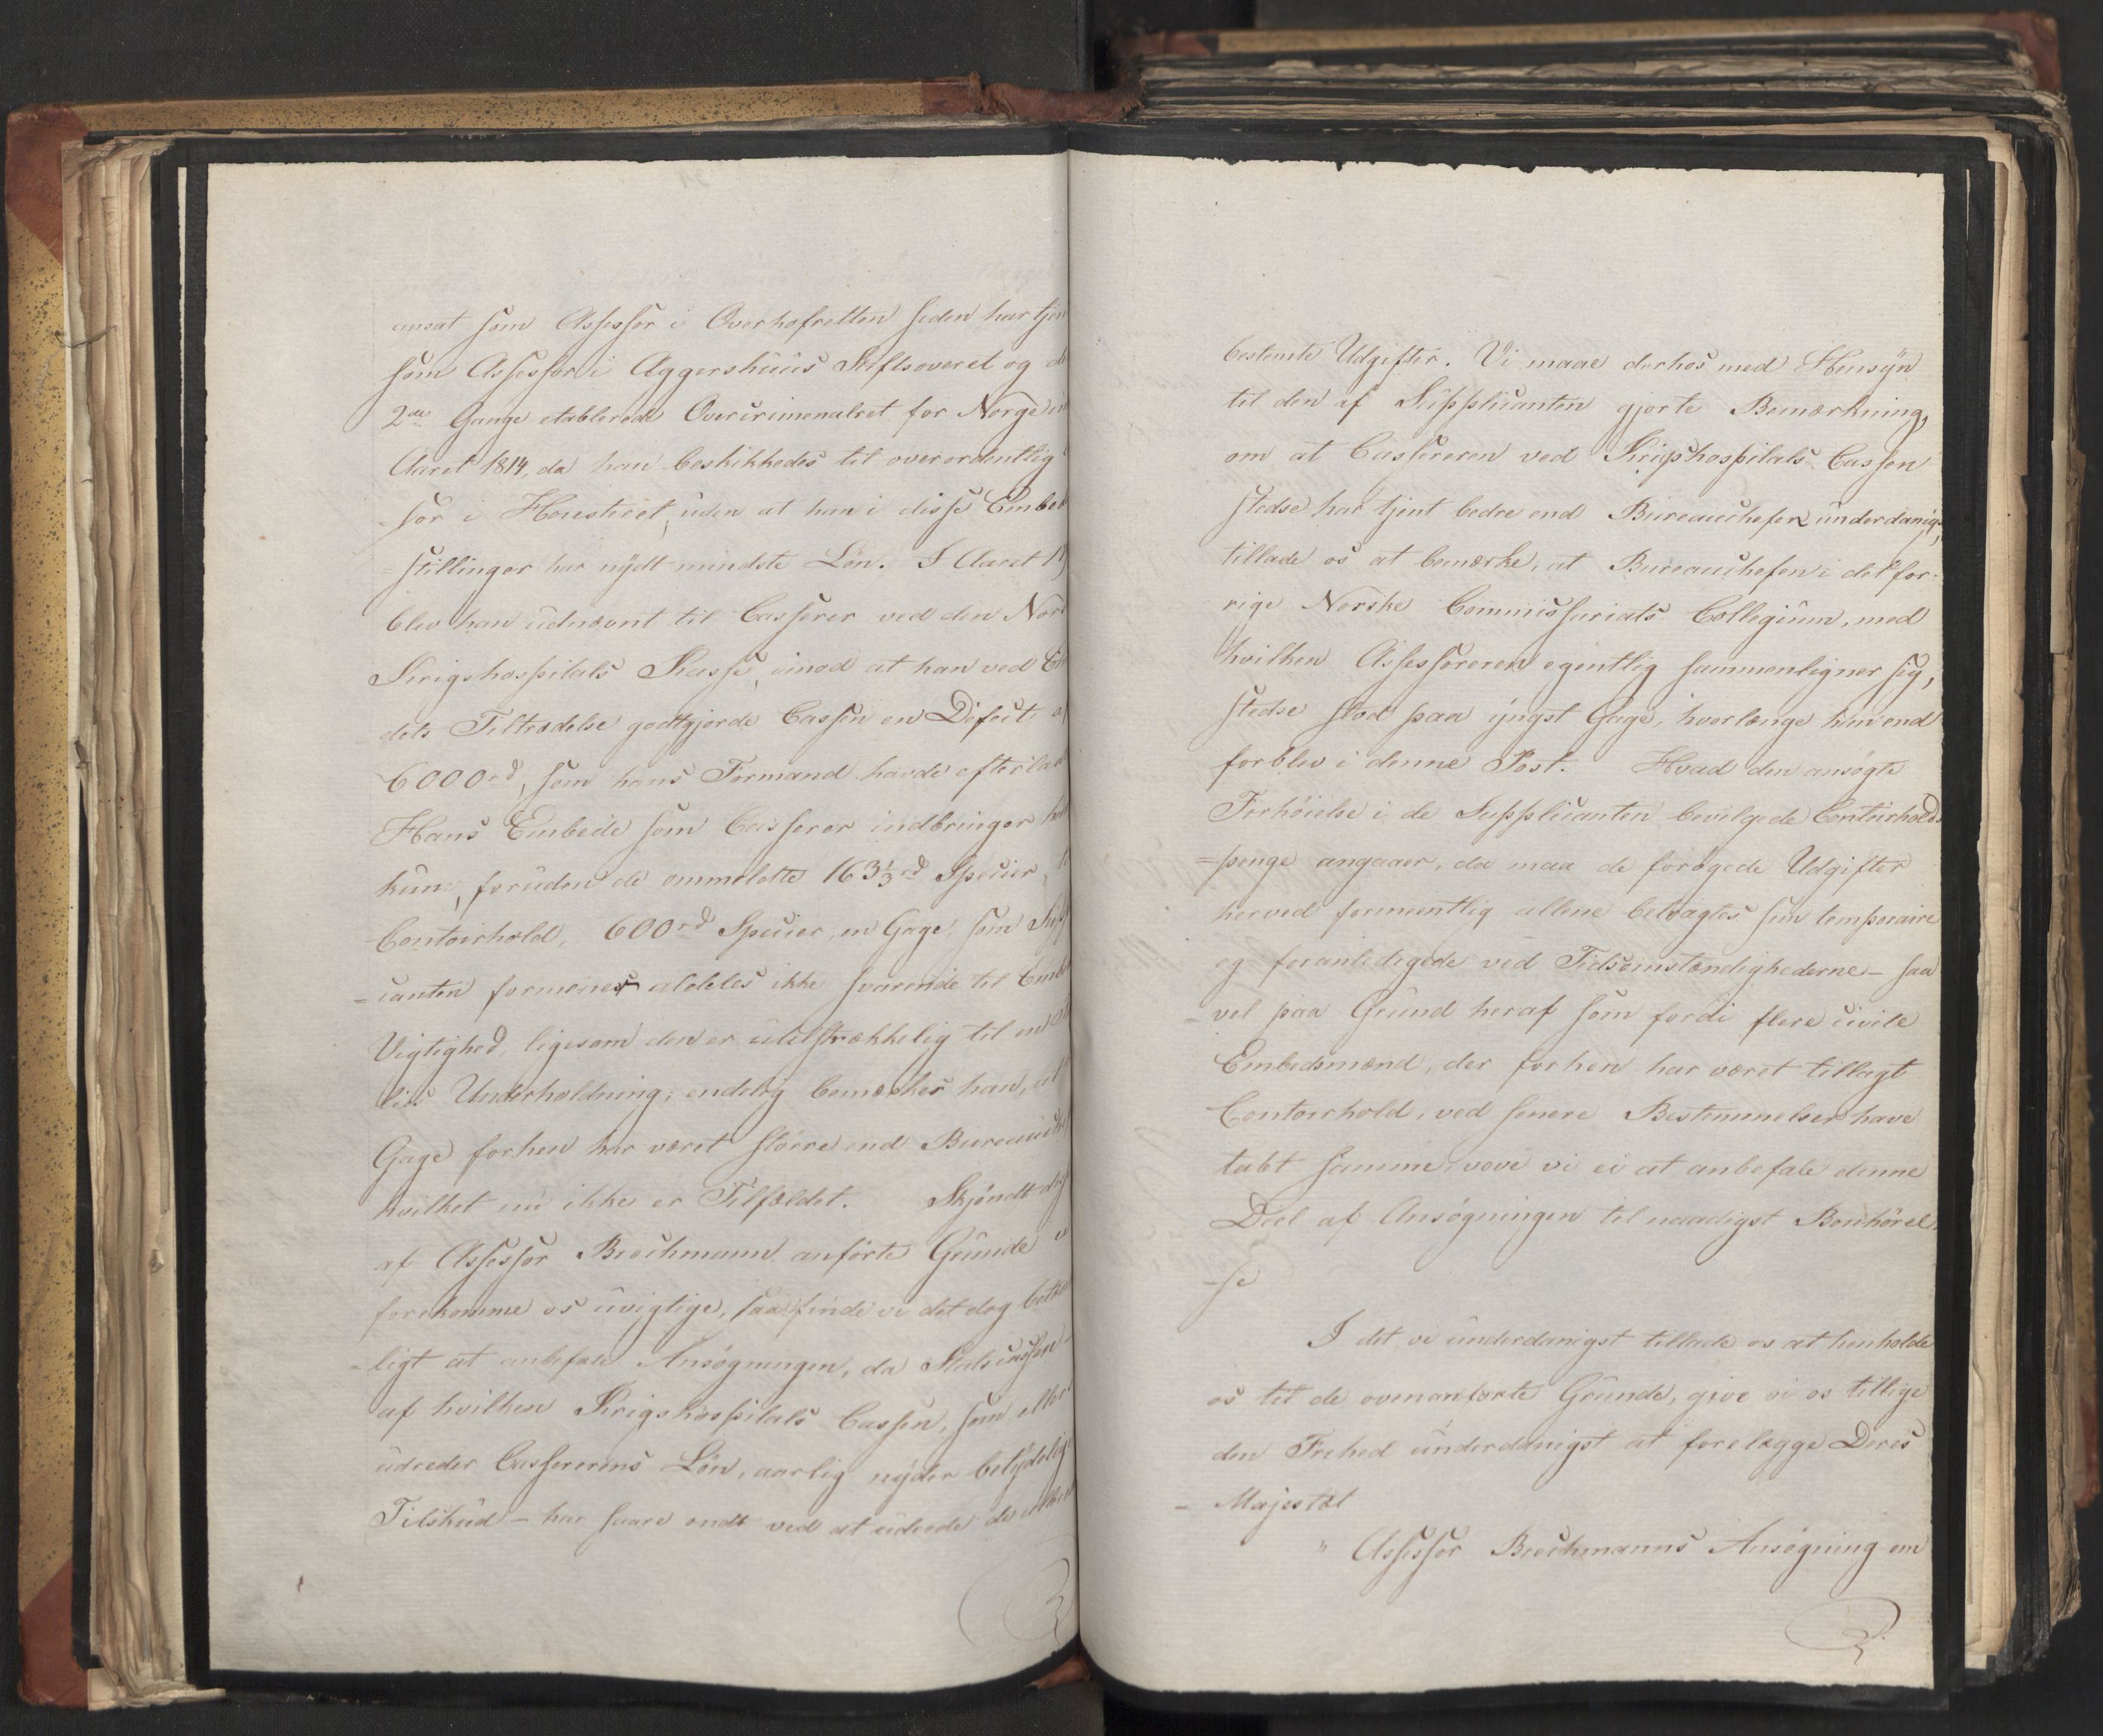 ansat som Assessor i Overhofretten siden har tjen
som Assessor i Aggershuus Stiftsoveret og d
2de Gange etablerede Overcrimenalret for Norge in
Aaret 1814, da han beskikkedes til overordentlig
=sor i Høiesteret, uden at han i disse Embed
=stillinger har nydt mindste Løn. I Aaret 18
blev han udnævnt til Casserer ved den Nor
Krigshospitals Kasse, imod at han ved E
dets Tiltrædelse godtgjorde Cassen en Defect af
6000rd, som hans Formand havde efterlad
Hans Embede som Casserer indbringer h
kun, foruden de ommeldte 163 1/3rd Specier
Contoirhold, 600rd Specier, en Gage, som Supp
=canten formener aldeles ikke svarende til Emb
Vigtighed, ligesom den er utilstrækkelig til en
lies Underholdning; endelig bemærker han, at
Gage forhen har været større end Bureauche
hvilket nu ikke er Tilfældet. Skjøndt de
af Assessor Brochmann anførte Grunde
forekomme os uvigtige, saa finde vi det dog betæn
=ligt at anbefale Ansøgningen, da Statscassen
af hvilken Krigshospitals Cassen, som ellers
udreder Cassererens Løn, aarlig nyder betydelig
Tilskud – har saare ondt ved at udrede de
bestemte Udgifter. Vi maae derhos med Hensyn
til den af Supplicanten gjorte Bemærkning,
om at Cassereren ved Krigshospitals Cassen
stedse har tjent bedre end Bureauchefen underdanigst,
tillade os at bemærke, at Bureauchefen i det for-
rige Norske Commissariats Collegium, med
hvilken Assessoreren egentlig sammenligner sig,
stedse stod paa yngst Gage, hvorlænge han end
forblev i denne Post. Hvad den ansøgte
Forhøielse i de Supplicanten bevilgede Contoirholds
=penge angaaer, da maa de forøgede Udgifter
herved formeentlig allene betragtes som temporaire
og foranledigede ved Tidsomstændighederne – saa
-vel paa Grund heraf som fordi flere civile
Embedsmænd, der forhen har været tillagt
Contoirhold, ved senere Bestemmelser have
tabt samme, vove vi ei at anbefale denne
Deel af Ansøgningen til naadigst Bønhørel
-se
I det vi underdanigst tillade os at henholde
os til de ovenanførte Grunde, give vi os tillige
den Frihed underdanigst at forelægge Deres
- Majestæt
" Assessor Brochmanns Ansøgning om